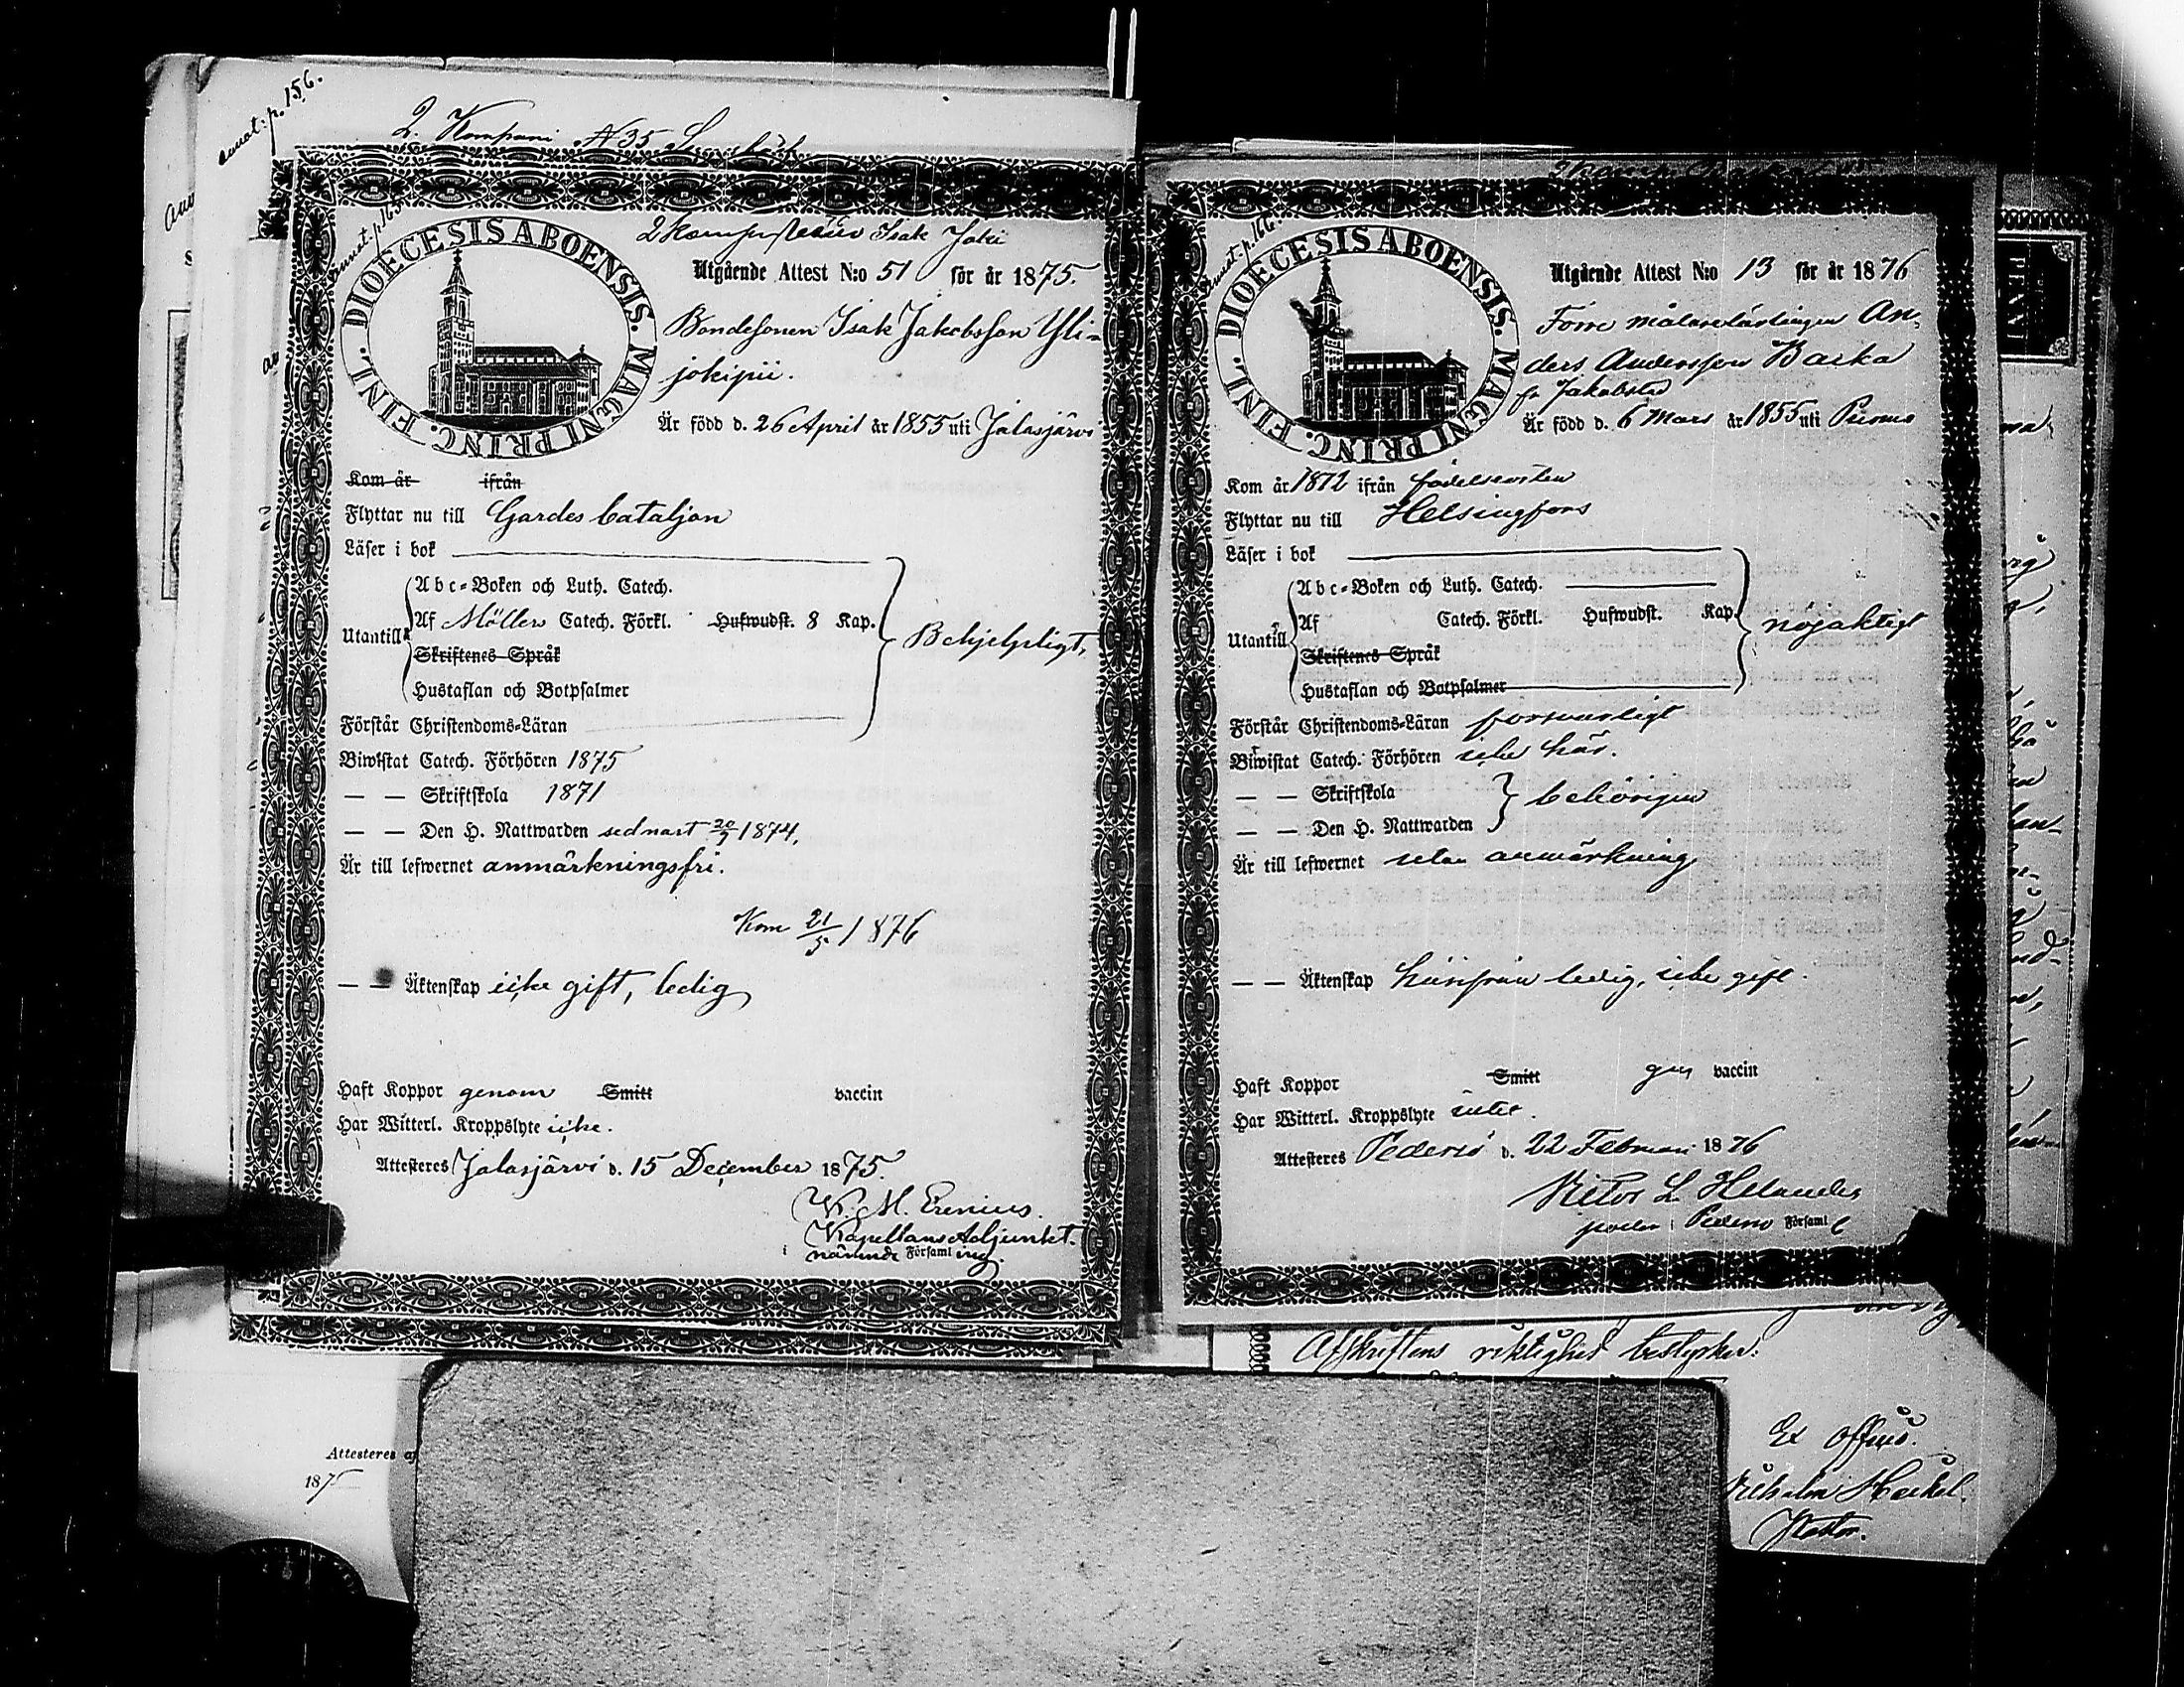 annot: p. 156.
2. Kompani N 35
annot. p. 165
2 Komp. Isak Joki
DIOECESIS ABOENSIS. MAGNI PRINC. FINL.
Utgående Attest N:o 51 för år 1875.
Bondesonen Isak Jakobsson Yli-
jokipii.
Är född d. 26 April år 1855 uti Jalasjärvi
Kom år ifrån
Flyttar nu till Gardes bataljon
Läser i bok
Abc-Boken och Luth. Catech.
Utantill Af Möllers Catech. Förkl. Hufwudst. 8 Kap. Behjelpligt,
Skriftenes Språk
Hustaflan och Botpsalmer
Förstår Christendoms-Läran
Biwistat Catech. Förhören 1875
— — Skriftskola 1871
— — Den H. Nattwarden sednast 20/7 1874,
Är till lefwernet anmärkningsfri.
Kom 21/5 1876
— — Äktenskap icke gift, ledig
Haft Koppor genom Smitt vaccin
Har Witterl. Kroppslyte icke.
Attesteres Jalasjärvi d. 15 December 1875.
W. M. Erenius.
Kapellans Adjunkt.
i nämnde Församling.
Attesteres af
187
annot: p. 166.
DIOECESIS ABOENSIS. MAGNI PRINC. FINL.
Utgående Attest N:o 13 för år 1876
Förre målarelärlingen An-
ders Andersson Backa
fr Jakobstad
Är född d. 6 Mars år 1855 uti Purmo
Kom år 1872 ifrån födelseorten
Flyttar nu till Helsingfors
Läser i bok
Abc-Boken och Luth. Catech.
Utantill Af Catech. Förkl. Hufwudst. Kap. nöjaktigt
Skriftenes Språk
Hustaflan och Botpsalmer
Förstår Christendoms-Läran försvarligt
Biwistat Catech. Förhören icke här.
— — Skriftskola behörigen
— — Den H. Nattwarden
Är till lefwernet utan anmärkning
— — Äktenskap härifrån ledig, icke gift.
Haft Koppor Smitt gm vaccin
Har Witterl. Kroppslyte intet.
Attesteres Pedersö d. 22 Februari 1876
Viktor L. Helander
i Pedersö Församl
Afskriftens riktighet bestyrker:
Ex officio.
Pastor.
PENNI